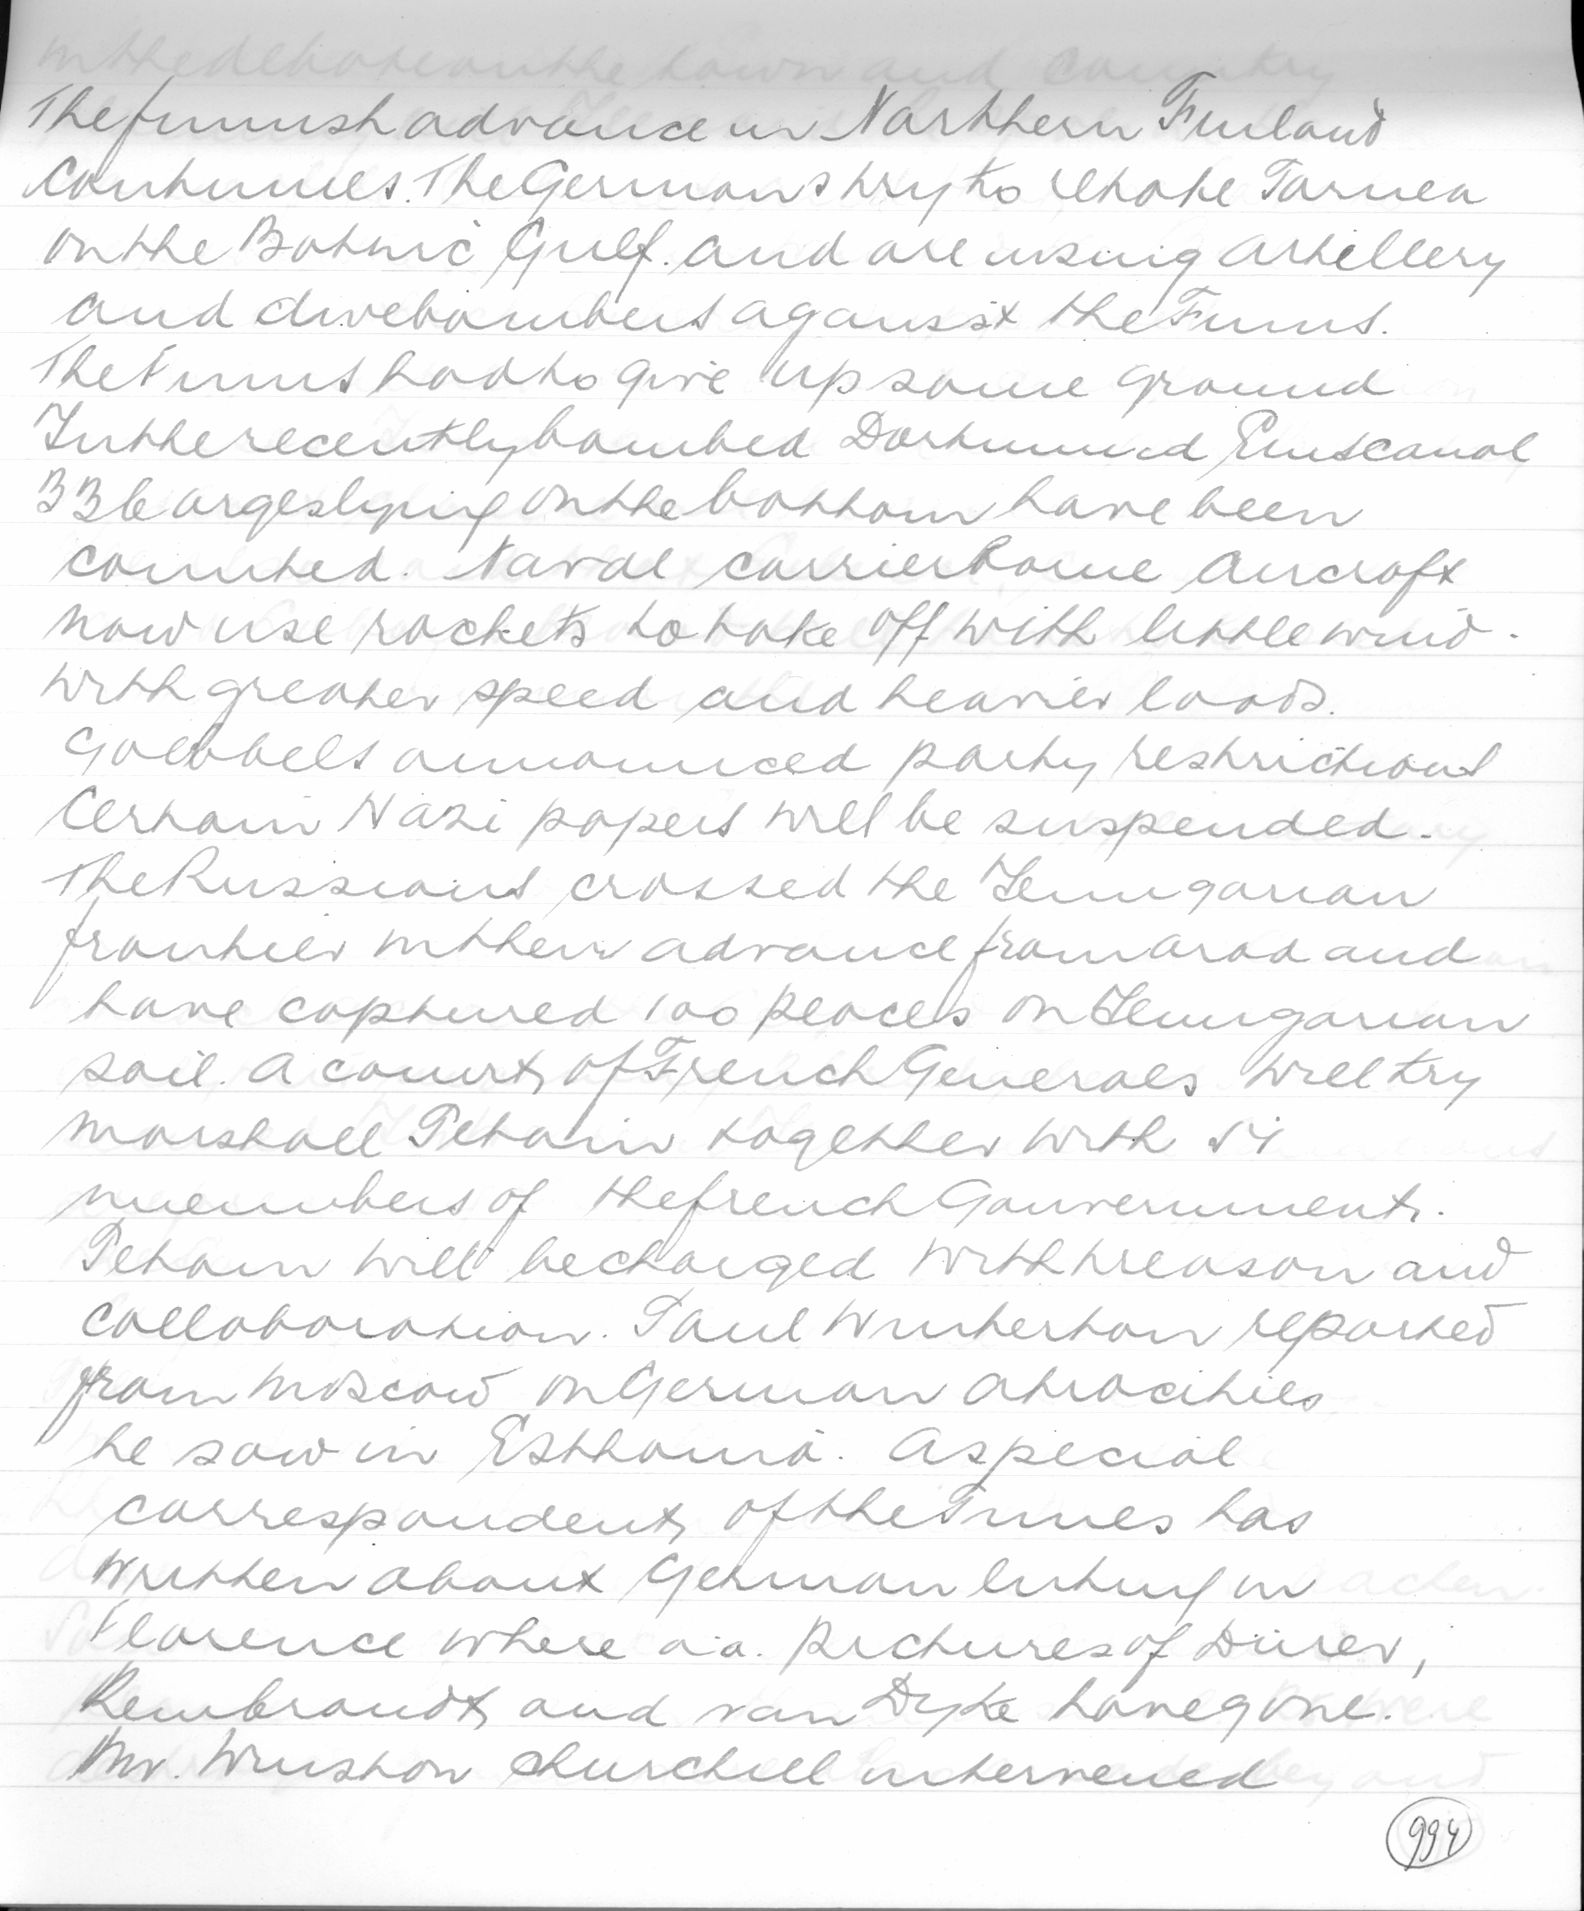 The finnish advance in Northern Finland
continues. The Germans try to retake Tornea
on the Botnic Gulf. and are using artillery
and divebombers against the Finns.
The Finns had to give up some ground
In the recently bombed Dortmund Emscanal
33 barges lying on the bottom have been
counted. Naval carrierborne aircraft
now use rockets to take off with little wind.
with greater speed and heavier loads.
Goebbels announced party restrictions
Certain Nazi papers will be suspended.
The Russians crossed the Hungarian
frontier in their advance from Arad and
have captured 100 places on Hungarian
soil. A court of French Generals will try
Marshall Petain together with 54
members of the french Gouvernment.
Petain will be charged with treason and
collaboration. Paul Winterton reported
from Moscow on German atrocities
he saw in Esthonia. A special
correspondent of the Times has
written about German luting in
Florence where a.a. pictures of Dürer,
Rembrandt and van Dyke have gone.
Mr. Winston Churchill intervened
994